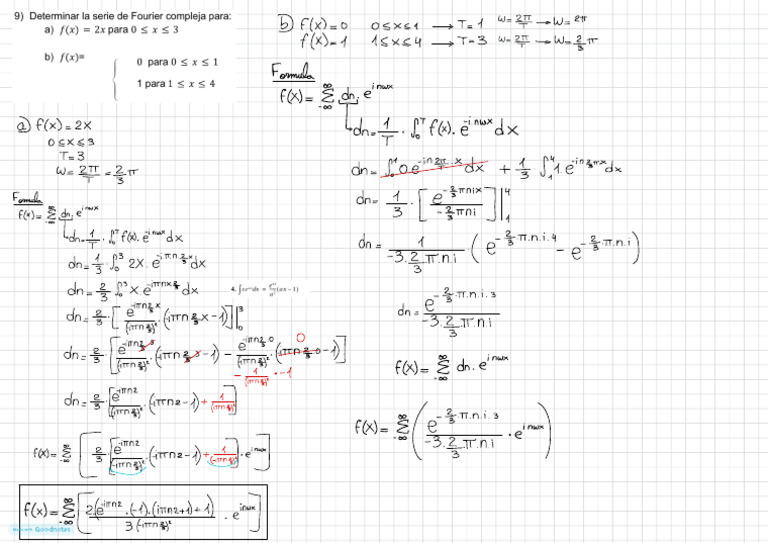 9) Determinar la serie de Fourier compleja para:
a) f(x) = 2x para 0 ≤ x ≤ 3
b) f(x)= { 0 para 0 ≤ x ≤ 1
1 para 1 ≤ x ≤ 4
a) f(x) = 2x
0 ≤ x ≤ 3
T = 3
w = 2π/T = 2/3 π
Formula
f(x) = ∑_{-∞}^{∞} dn. e^{inwx}
dn = 1/T · ∫_0^T f(x). e^{-inwx} dx
dn = 1/3 · ∫_0^3 2x. e^{-iπn 2/3 x} dx
dn = 2/3 · ∫_0^3 x. e^{-iπnx 2/3} dx
dn = 2/3 · [ e^{-iπn 2/3 x}/(-iπn 2/3)² · (-iπn 2/3 x - 1) ] |_0^3
dn = 2/3 · [ e^{-iπn 2/3 · 3}/(-iπn 2/3)² · (-iπn 2/3 · 3 - 1) - e^{-iπn 2/3 · 0}/(-iπn 2/3)² · (-iπn 2/3 · 0 - 1) ]
0
- 1/(-iπn 2/3)² · -1
dn = 2/3 · [ e^{-iπn2}/(-iπn 2/3)² · (-iπn2 - 1) + 1/(-iπn 2/3)² ]
f(x) = ∑_{-∞}^{∞} [ 2/3 · [ e^{-iπn2}/(-iπn 2/3)² · (-iπn2 - 1) + 1/(-iπn 2/3)² ] · e^{inwx} ]
f(x) = ∑_{-∞}^{∞} [ 2(e^{-iπn2} · (-1) · (iπn2+1) + 1)/3(-iπn 2/3)² · e^{inwx} ]
Goodnotes
b) f(x) = 0 0 ≤ x ≤ 1 → T = 1 w = 2π/T → w = 2π
f(x) = 1 1 ≤ x ≤ 4 → T = 3 w = 2π/T → w = 2/3 π
Formula
f(x) = ∑_{-∞}^{∞} dn. e^{inwx}
dn = 1/T · ∫_0^T f(x). e^{-inwx} dx
dn = ∫_0^1 0 e^{-in2π·x} dx + 1/3 ∫_1^4 1. e^{-in 2/3 πx} dx
dn = 1/3 · [ e^{-2/3 πnix}/(-2/3 πni) ] |_1^4
dn = 1/(-3·2/3·π·n·i) · ( e^{-2/3·π·n·i·4} - e^{-2/3·π·n·i} )
dn = e^{-2/3·π·n·i·3}/(-3·2/3·π·n·i)
f(x) = ∑_{-∞}^{∞} dn. e^{inwx}
f(x) = ∑_{-∞}^{∞} ( e^{-2/3·π·n·i·3}/(-3·2/3·π·n·i) · e^{inwx} )